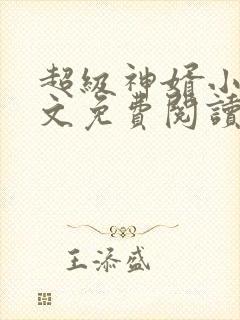 超級神婿小
文免費閱讀
王添盛